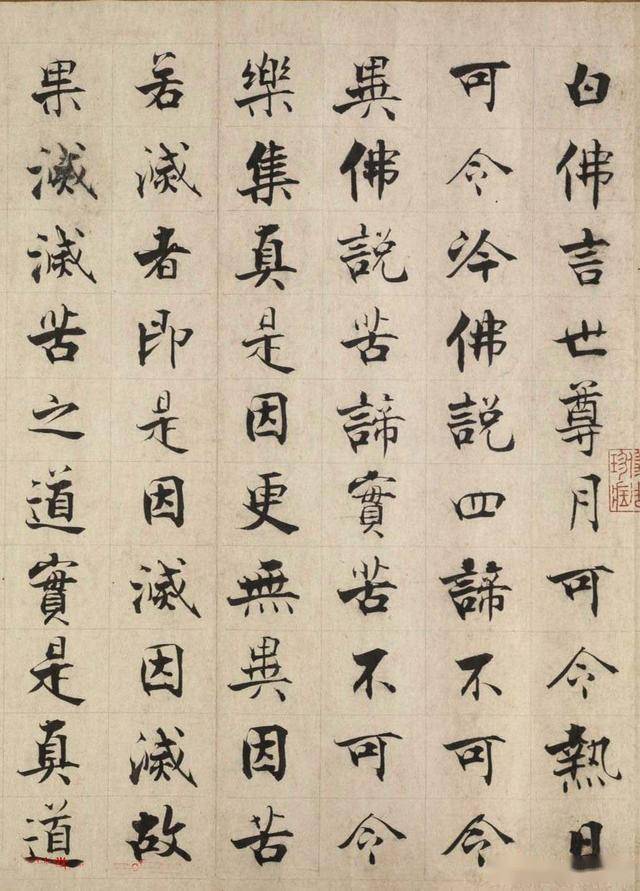 白佛言世尊月可令熱日
可令冷佛説四諦不可令
異佛説苦諦實苦不可令
樂集真是因更無異因苦
若滅者即是因滅因滅故
果滅滅苦之道實是真道